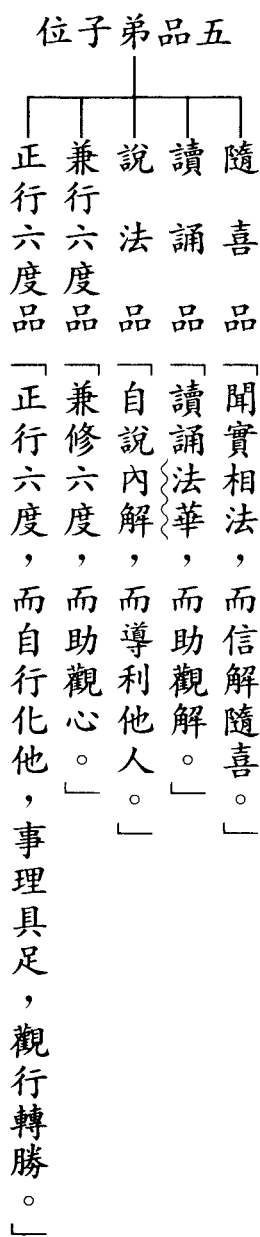 五品弟子位
隨喜品「聞實相法，而信解隨喜。」
讀誦品「讀誦法華，而助觀解。」
說法品「自說內解，而導利他人。」
兼行六度品「兼修六度，而助觀心。」
正行六度品「正行六度，而自行化他，事理具足，觀行轉勝。」